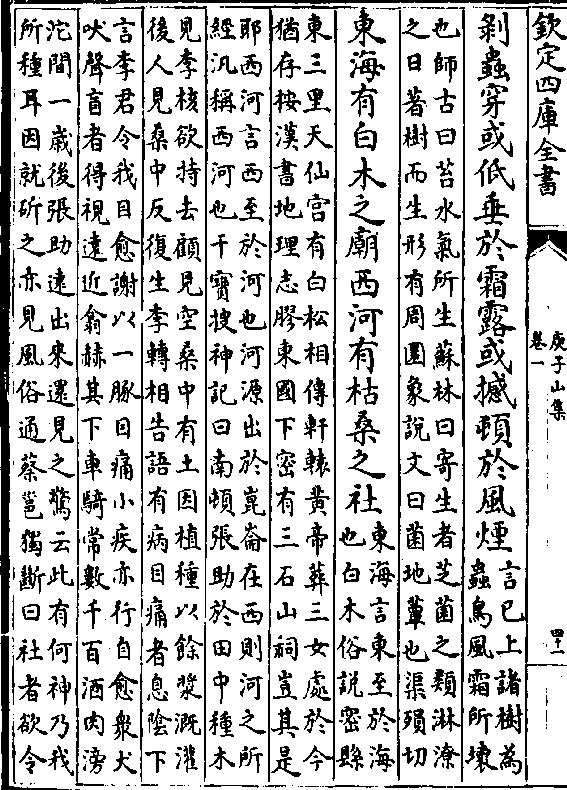 欽定四庫全書
庾子山集
卷一
四十一
剥蟲穿或低垂於霜露或撼頓於風煙
言已上諸樹為
蟲鳥風霜所壞
也師古曰苔水氣所生蘇林曰寄生者芝菌之類淋潦
之日著樹而生形有周圜象說文曰菌地蕈也渠殞切
東海有白木之廟西河有枯桑之社
東海言東至於海
也白木俗說密縣
東三里天仙宫有白松相傳軒轅黄帝葬三女處於今
猶存桉漢書地理志膠東國下密有三石山祠豈其是
耶西河言西至於河也河源出於崑崙在西則河之所
經汎稱西河也干寶搜神記曰南頓張助於田中種禾
見李核欲持去顧見空桑中有土因植種以餘漿溉灌
後人見桑中反復生李轉相告語有病目痛者息陰下
言李君令我目愈謝以一豚目痛小疾亦行自愈衆犬
吠聲盲者得視遠近翕赫其下車騎常數千百酒肉滂
沱間一歲後張助遠出來還見之驚云此有何神乃我
所種耳因就斫之亦見風俗通蔡邕獨斷曰社者欲令